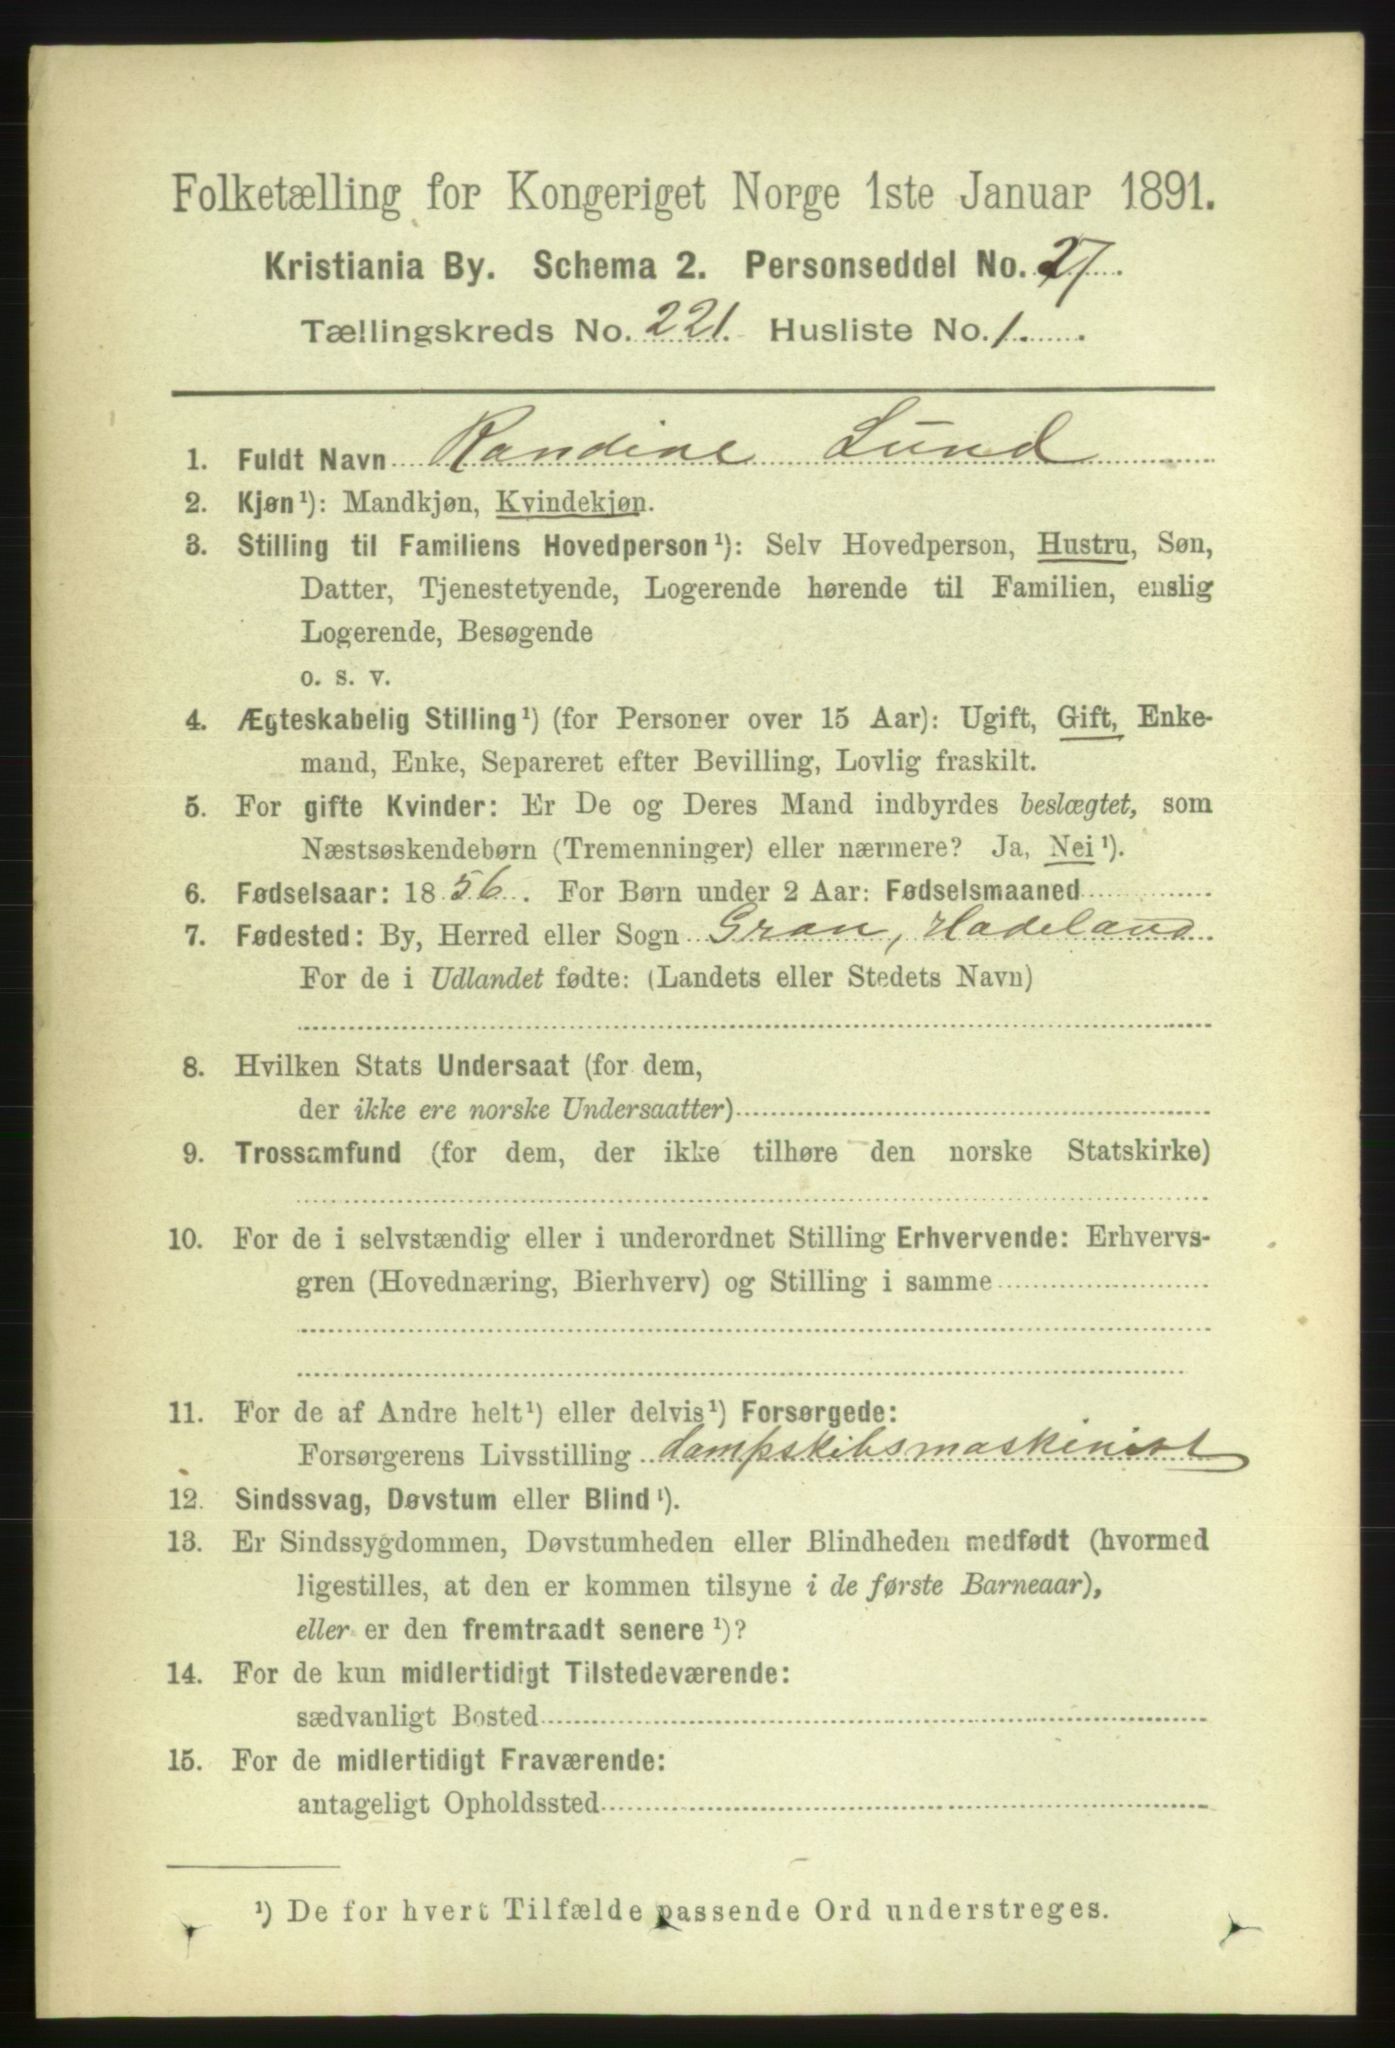 Folketælling for Kongeriget Norge 1ste Januar 1891.
Kristiania By. Schema 2. Personseddel No. 27
Tællingskreds No. 221. Husliste No. 1.
1. Fuldt Navn Randine Lund
2. Kjøn¹): Mandkjøn, Kvindekjøn.
3. Stilling til Familiens Hovedperson¹): Selv Hovedperson, Hustru, Søn,
Datter, Tjenestetyende, Logerende hørende til Familien, enslig
Logerende, Besøgende
o. s. v.
4. Ægteskabelig Stilling¹) (for Personer over 15 Aar): Ugift, Gift, Enke-
mand, Enke, Separeret efter Bevilling, Lovlig fraskilt.
5. For gifte Kvinder: Er De og Deres Mand indbyrdes beslægtet, som
Næstsøskendebørn (Tremenninger) eller nærmere? Ja, Nei¹).
6. Fødselsaar: 1856. For Børn under 2 Aar: Fødselsmaaned
7. Fødested: By, Herred eller Sogn Gran, Hadeland
For de i Udlandet fødte: (Landets eller Stedets Navn)
8. Hvilken Stats Undersaat (for dem,
der ikke ere norske Undersaatter)
9. Trossamfund (for dem, der ikke tilhøre den norske Statskirke)
10. For de i selvstændig eller i underordnet Stilling Erhvervende: Erhvervs-
gren (Hovednæring, Bierhverv) og Stilling i samme
11. For de af Andre helt¹) eller delvis¹) Forsørgede:
Forsørgerens Livsstilling dampskibsmaskinist
12. Sindssvag, Døvstum eller Blind¹).
13. Er Sindssygdommen, Døvstumheden eller Blindheden medfødt (hvormed
ligestilles, at den er kommen tilsyne i de første Barneaar),
eller er den fremtraadt senere¹)?
14. For de kun midlertidigt Tilstedeværende:
sædvanligt Bosted
15. For de midlertidigt Fraværende:
antageligt Opholdssted
¹) De for hvert Tilfælde passende Ord understreges.